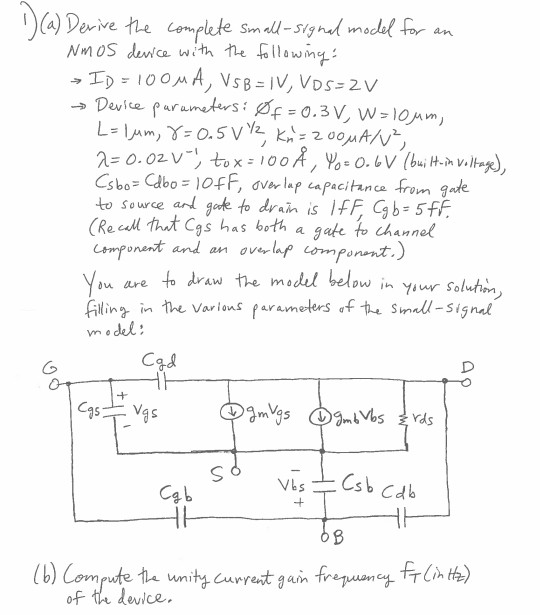 1) (a) Derive the complete small-signal model for an
NMOS device with the following:
→ ID = 100μA, VSB = 1V, VDS = 2V
→ Device parameters: Øf = 0.3V, W = 10μm,
L = 1μm, γ = 0.5 V^1/2, Kn' = 200μA/V²,
λ = 0.02V⁻¹, tox = 100Å, Ψ0 = 0.6V (built-in voltage),
Csbo = Cdbo = 10fF, overlap capacitance from gate
to source and gate to drain is 1fF, Cgb = 5fF.
(Recall that Cgs has both a gate to channel
component and an overlap component.)
You are to draw the model below in your solution,
filling in the various parameters of the small-signal
model:
G
Cgd
D
Cgs
+
Vgs
-
gmVgs
gmbVbs
rds
S
Vbs
-
+
Csb
Cgb
Cdb
B
(b) Compute the unity current gain frequency fT (in Hz)
of the device.